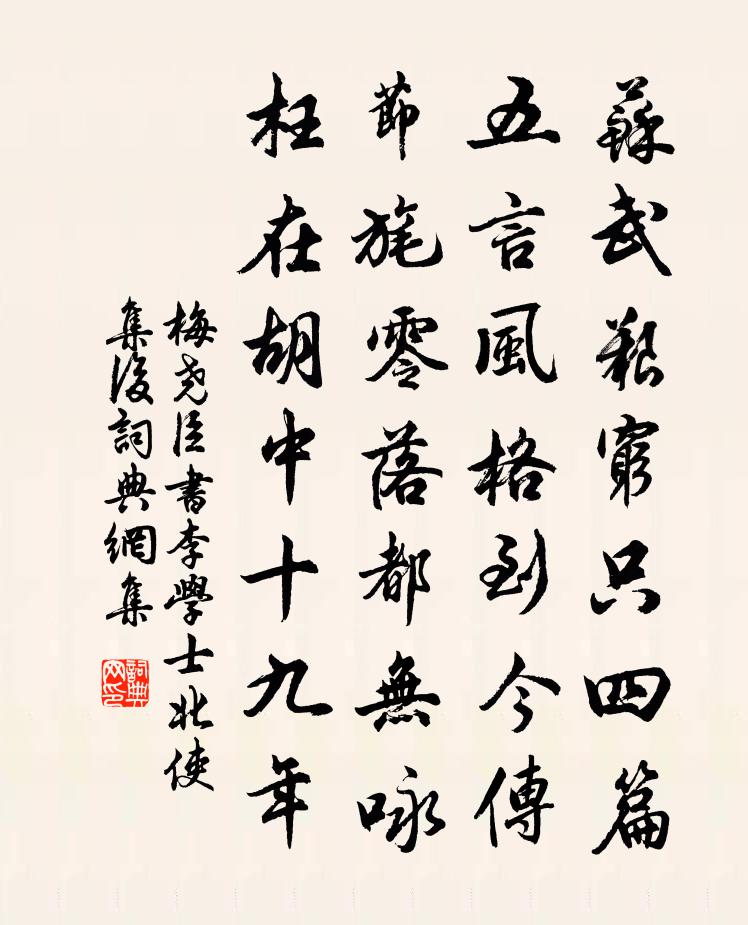 蘇武艱窮只四篇
五言風格到今傳
節旄零落都無咏
枉在胡中十九年
梅尧臣書李學士北使
集後詞典網集
詞典
网印